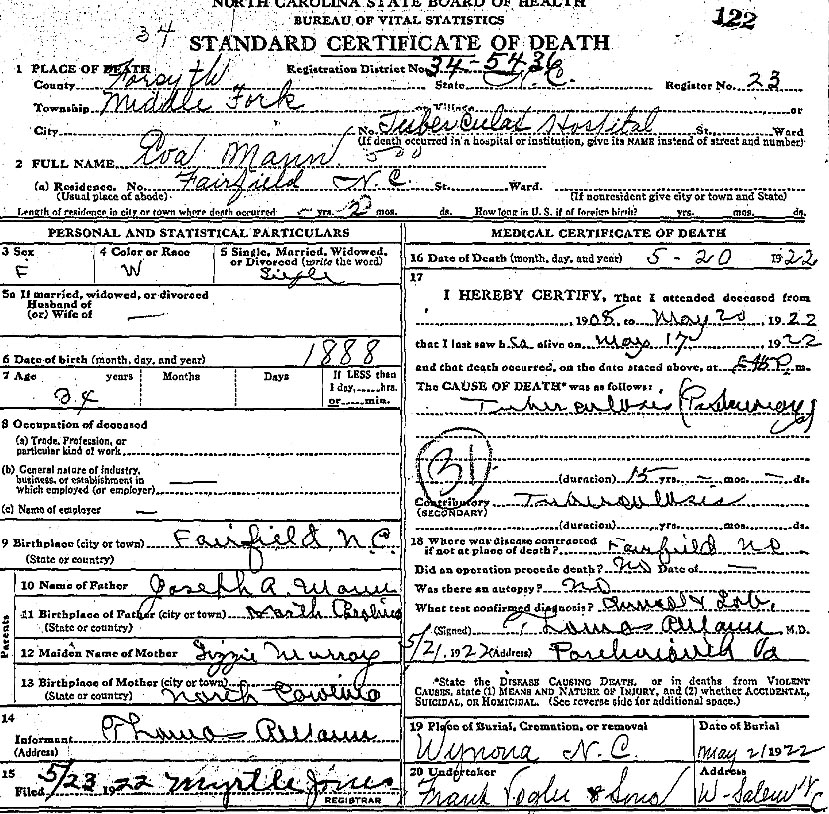 NORTH CAROLINA STATE BOARD OF HEALTH
BUREAU OF VITAL STATISTICS
122
34
STANDARD CERTIFICATE OF DEATH
1 PLACE OF DEATH
Registration District No. 34-5436
County Forsyth State N.C. Register No. 23
Township Middle Fork or Village or
City No. Tubercular Hospital St. Ward
(If death occurred in a hospital or institution, give its NAME instead of street and number)
2 FULL NAME Eva Mann
(a) Residence. No. Fairfield N.C. St. Ward.
(Usual place of abode) (If nonresident give city or town and State)
Length of residence in city or town where death occurred — yrs. 2 mos. ds. How long in U.S. if of foreign birth? yrs. mos. ds.
PERSONAL AND STATISTICAL PARTICULARS
3 Sex
F
4 Color or Race
W
5 Single, Married, Widowed, or Divorced (write the word)
Single
5a If married, widowed, or divorced
Husband of
(or) Wife of —
6 Date of birth (month, day, and year) 1888
7 Age years Months Days If LESS than
1 day,......hrs.
or......min.
34
8 Occupation of deceased
(a) Trade, Profession, or
particular kind of work
(b) General nature of industry,
business, or establishment in
which employed (or employer) —
(c) Name of employer —
9 Birthplace (city or town) Fairfield, N.C.
(State or country)
Parents
10 Name of Father Joseph A. Mann
11 Birthplace of Father (city or town) North Carolina
(State or country)
12 Maiden Name of Mother Lizzie Murray
13 Birthplace of Mother (city or town)
(State or country) North Carolina
14
Informant Thomas Mann
(Address)
15
Filed 5/23 1922 Myrtle Jones
REGISTRAR
MEDICAL CERTIFICATE OF DEATH
16 Date of Death (month, day, and year) 5-20 1922
17
I HEREBY CERTIFY, That I attended deceased from
1908, to May 20 1922
that I last saw her alive on May 17 1922
and that death occurred, on the date stated above, at P.m.
The CAUSE OF DEATH* was as follows:
Tuberculosis (Pulmonary)
31
(duration) 15 yrs. — mos. — ds.
Contributory Tuberculosis
(SECONDARY)
(duration) yrs. mos. ds.
18 Where was disease contracted
if not at place of death? Fairfield NC
Did an operation precede death? No Date of —
Was there an autopsy? No
What test confirmed diagnosis? & Lab.
(Signed) Thomas Mann M.D.
5/21, 1922 (Address) Va
*State the DISEASE CAUSING DEATH, or in deaths from VIOLENT
CAUSES, state (1) MEANS AND NATURE OF INJURY, and (2) whether ACCIDENTAL,
SUICIDAL, or HOMICIDAL. (See reverse side for additional space.)
19 Place of Burial, Cremation, or removal Date of Burial
Wynona N.C. May 21 1922
20 Undertaker Address
Frank Vogler & Sons W-Salem N C